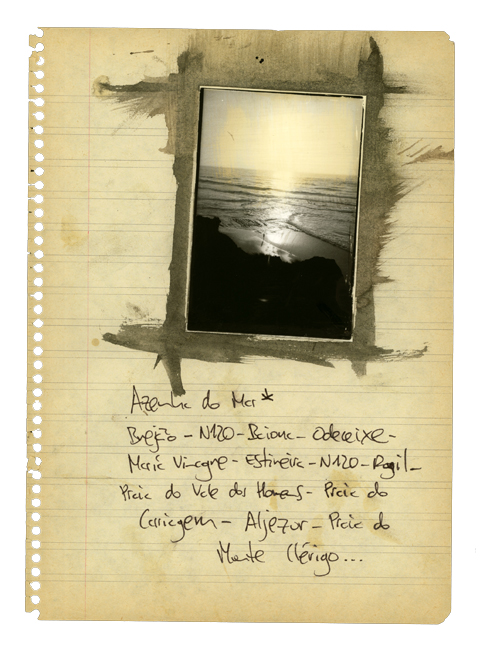 Azenha do Mar*
Brejão - N120 - Baiona - Odeceixe -
Maria Vinagre - Esteveira - N120 - Rogil -
Praia do Vale dos Homens - Praia do
Carriagem - Aljezur - Praia do
Monte Clérigo...